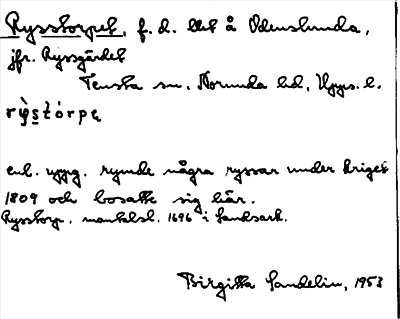 Rysstorpet, f. d. lht å Odenslunda,
jfr. Ryssgärdet
Tensta sn, Norunda hd, Upps. l.
rỳstórpe
enl. uppg. rymde några ryssar under kriget
1809 och bosatte sig här.
Rysstorp. mantalsl. 1696 i Landsark.
Birgitta Sandelin, 1953